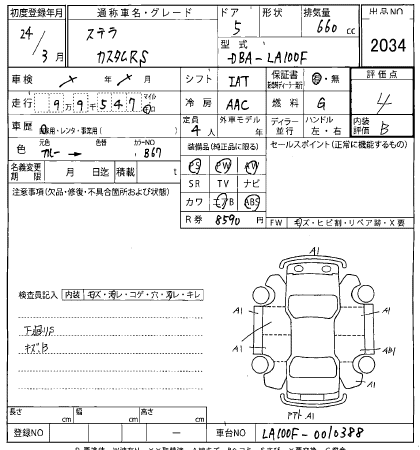 初度登録年月 通称車名・グレード ドア 形状 排気量 出品NO
24 / 3 月 ステラ カスタムRS 5 660 cc 2034
型式 DBA-LA100F
車検 × 年 × 月 シフト IAT 保証書 有・無 評価点 4
走行 9 9 5 4 7 マイル km 冷房 AAC 燃料 G
車歴 自家用・レンタ・事業用( ) 定員 4 人 外車モデル 年 ディーラー 並行 ハンドル 左・右 内装評価 B
色 元色 グレー → 色替 カラーNO B67 装備品(純正品に限る) セールスポイント(正常に機能するもの)
名義変更期限 月 日迄 積載 t PS PW AW
注意事項(欠品・修復・不具合箇所および状態) SR TV ナビ
カワ エアB ABS
R券 8590 円 FW キズ・ヒビ割・リペア跡・X要
A1
検査員記入 内装 キズ・汚レ・コゲ・穴・濡レ・キレ
A1 A1
下廻りS
キズB
A1 AB1
A1
アテトA1
長さ cm 幅 cm 高さ cm
登録NO ー 車台NO LA100F-0010388